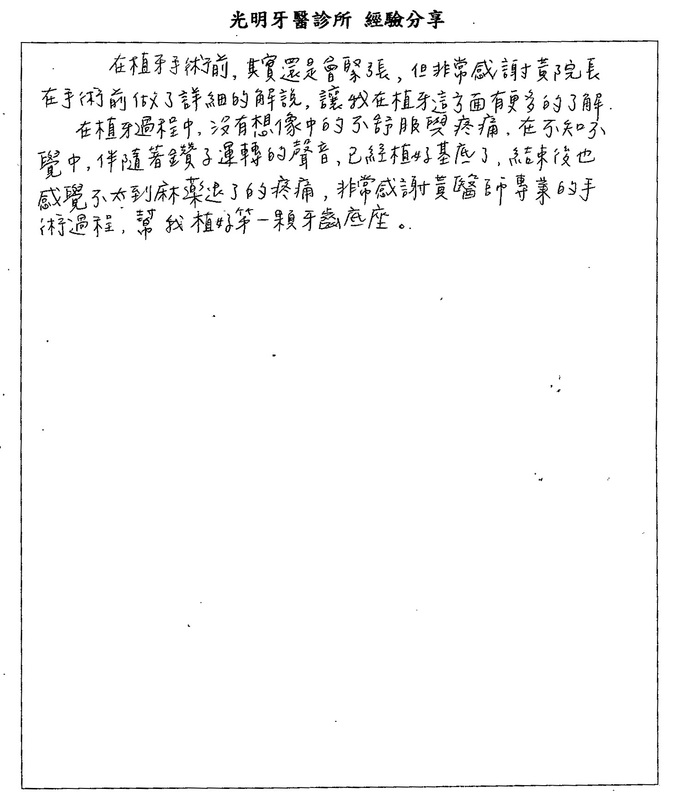 光明牙醫診所 經驗分享
在植牙手術前，其實還是會緊張，但非常感謝黃院長
在手術前做了詳細的解說，讓我在植牙這方面有更多的了解.
在植牙過程中，沒有想像中的不舒服與疼痛，在不知不
覺中，伴隨著鑽子運轉的聲音，已經植好基底了，結束後也
感覺不太到麻藥退了的疼痛，非常感謝黃醫師專業的手
術過程，幫我植好第一顆牙齒底座。